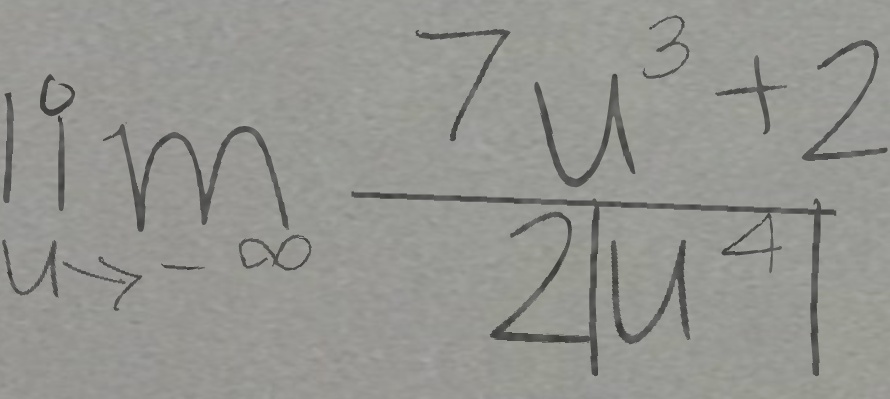 \lim_{u \to -\infty} \frac{7u^3+2}{2|u^4|}